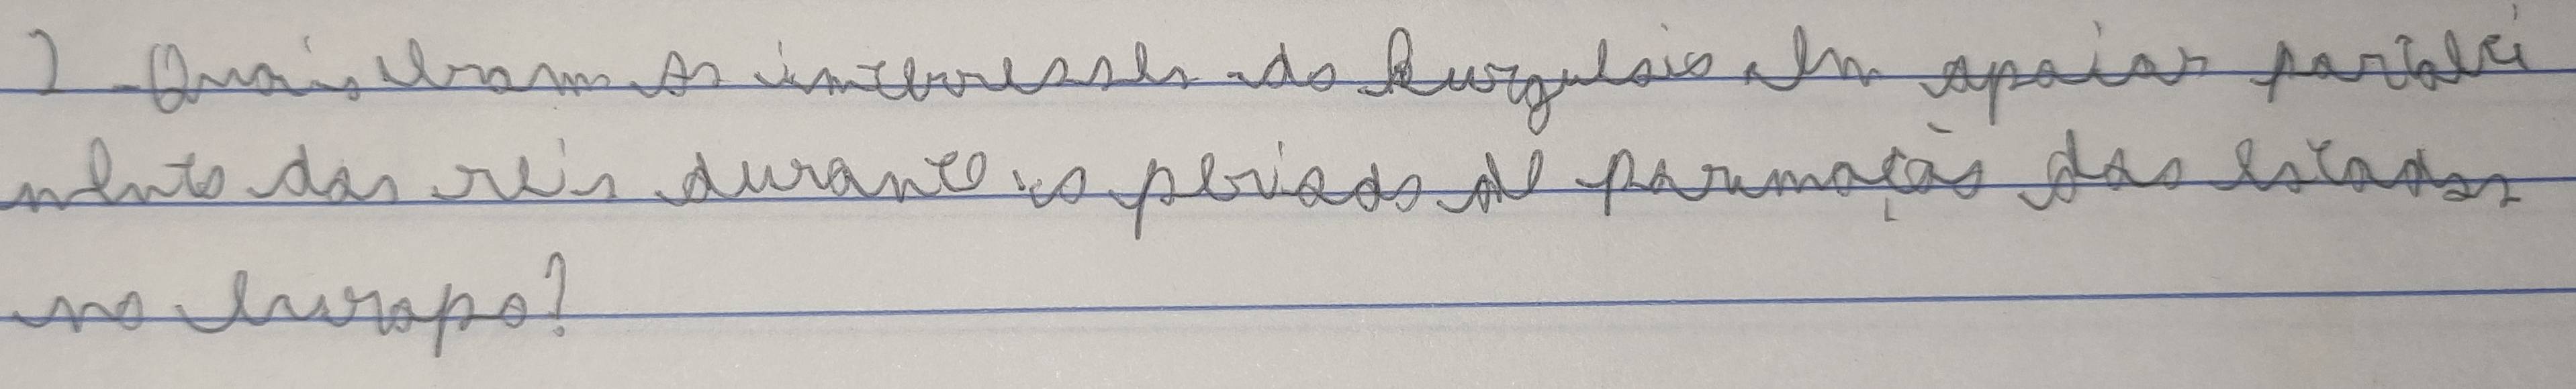 2 - Quais eram os interesses da burguesia em apoiar fortaleci
mento dos reis durante o periodo de formação dos estados
na europa?